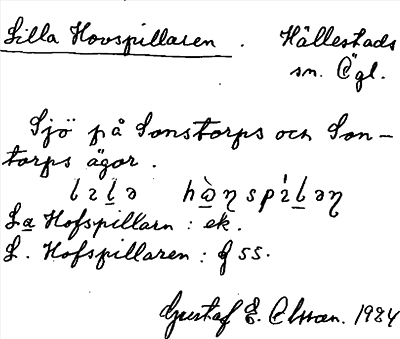 Lilla Hovspillaren . Hällestads
sn. Ögl.
Sjö på Sonstorps och Son-
torps ägor .
La Hofspillarn : ek.
L. Hofspillaren : g 55.
Gustaf E. Olsson. 1924